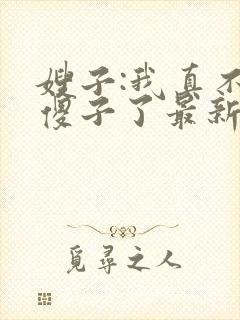 嫂子:我真不
傻子了最新
覓尋之人